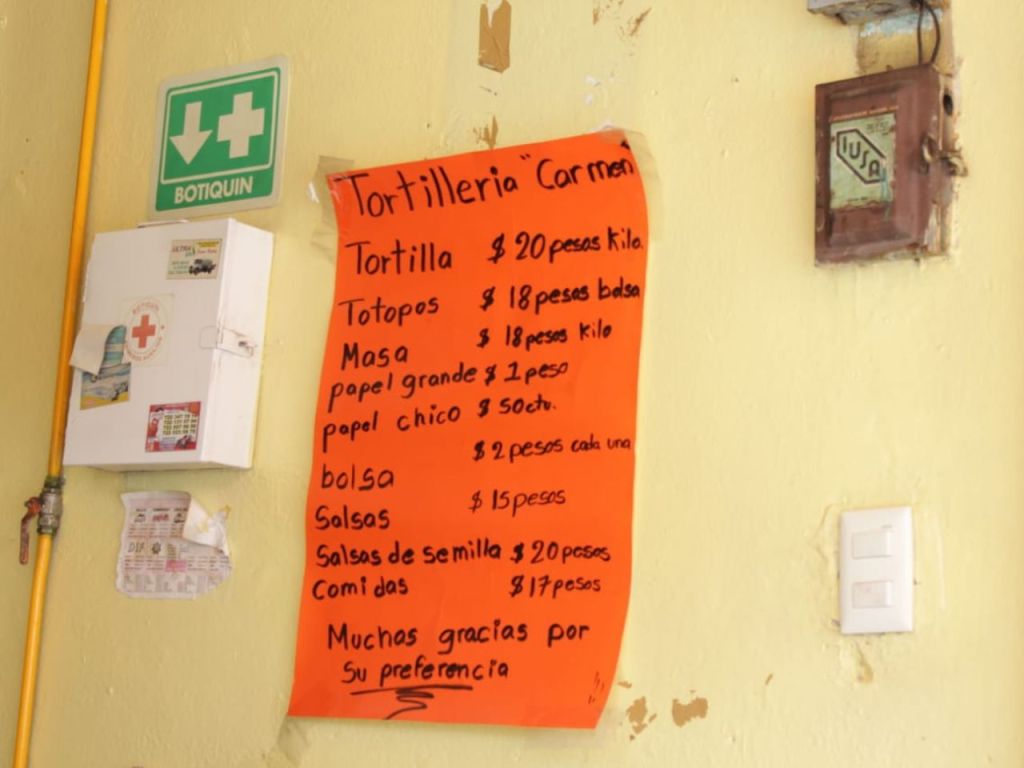 BOTIQUIN
Tortilleria "Carmen"
Tortilla $ 20 pesos kilo.
Totopos $ 18 pesos bolsa
Masa $ 18 pesos kilo
papel grande $ 1 peso
papel chico $ 50 ctv.
bolsa $ 2 pesos cada una
Salsas $ 15 pesos
Salsas de semilla $ 20 pesos
Comidas $ 17 pesos
Muchas gracias por
su preferencia
IUSA
ULTRA
DIF